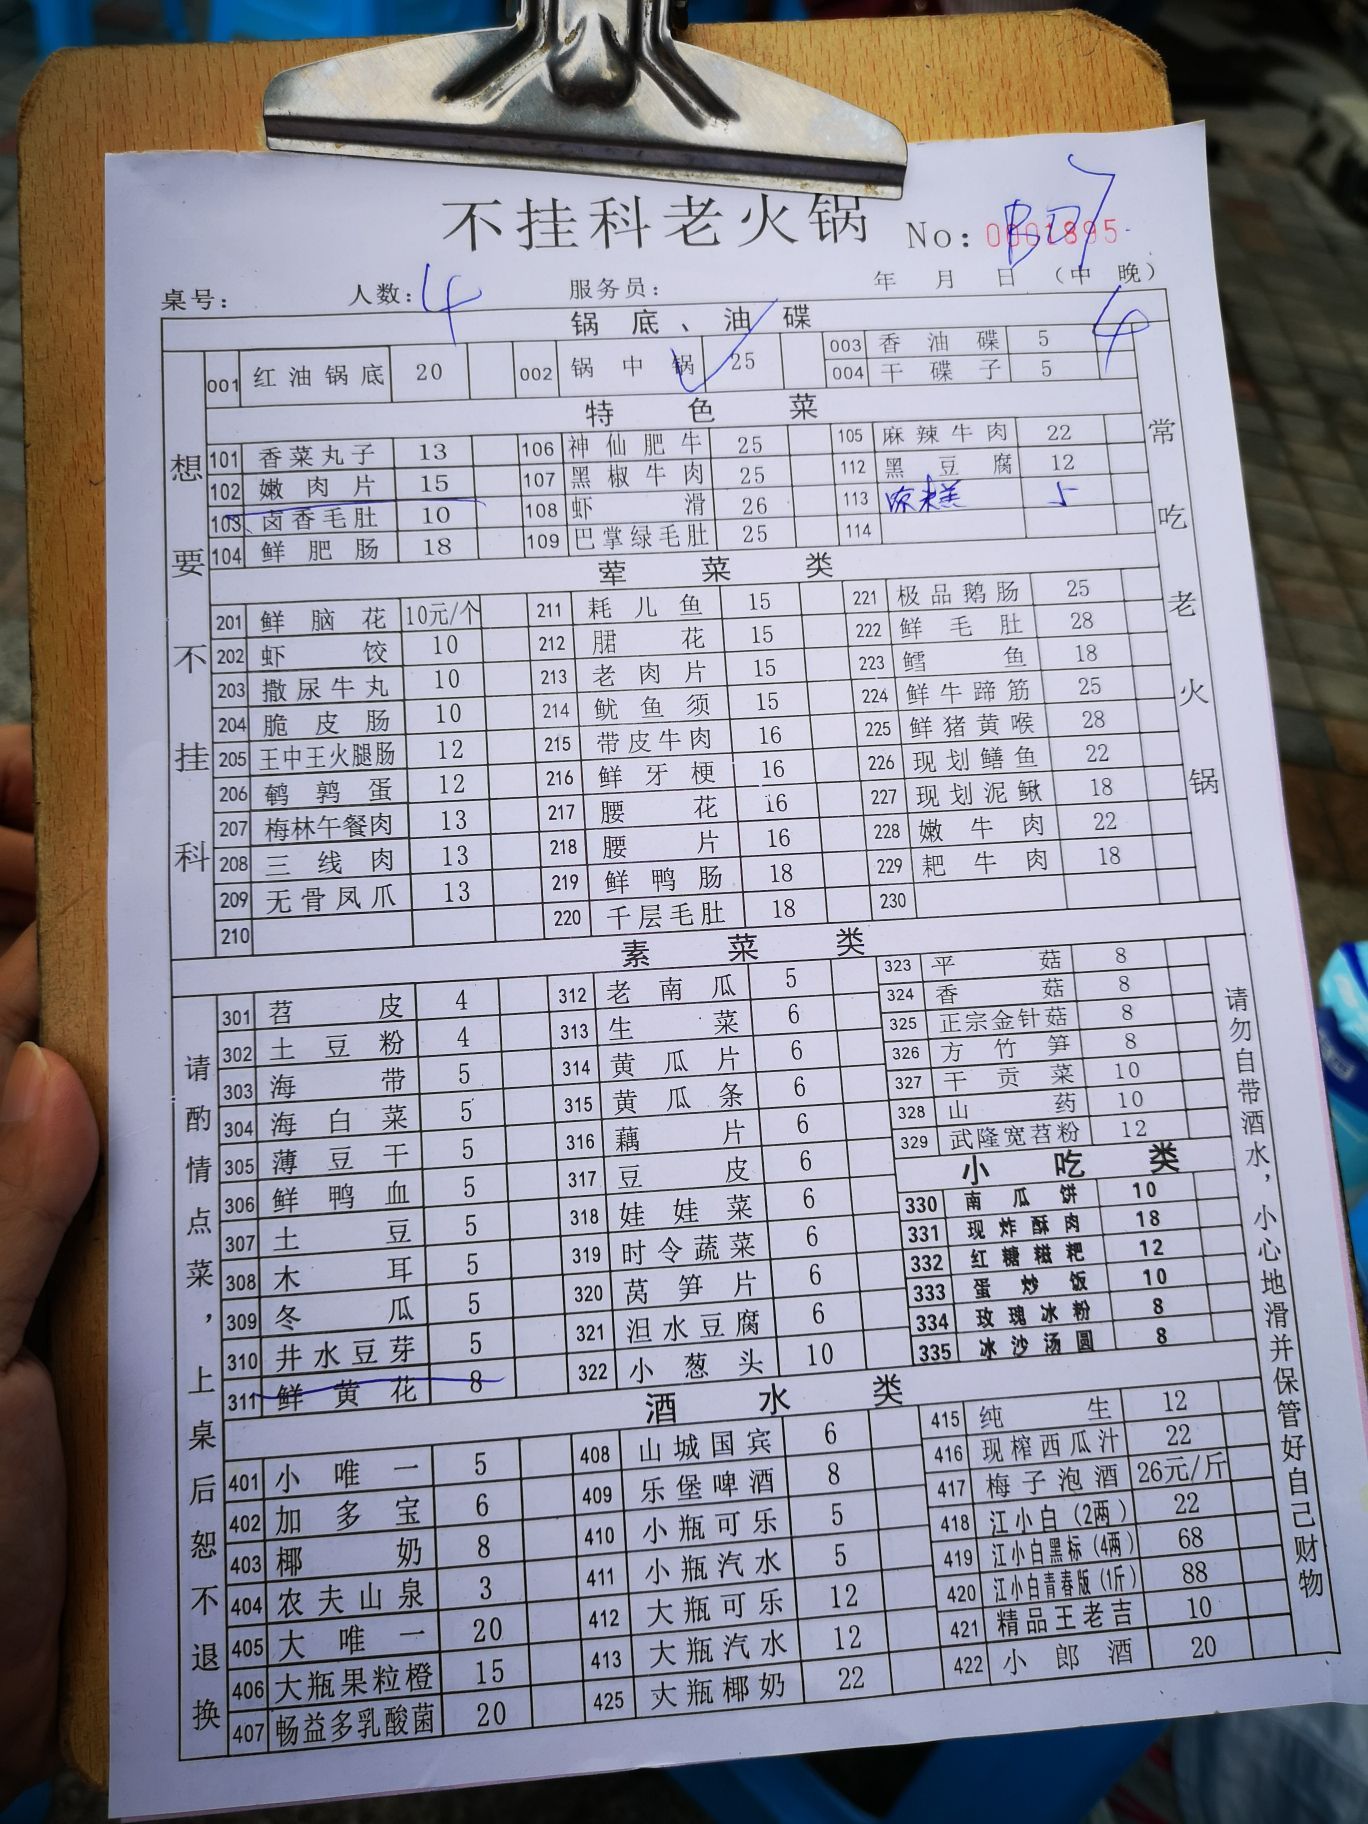 不挂科老火锅 No: 0001895
桌号: 人数: 4 服务员: 年 月 日 (中 晚)
锅底、油碟
001 红油锅底 20 002 锅中锅 25 003 香油碟 5 4
004 干碟子 5
特色菜
101 香菜丸子 13 106 神仙肥牛 25 105 麻辣牛肉 22
102 嫩肉片 15 107 黑椒牛肉 25 112 黑豆腐 12
103 卤香毛肚 10 108 虾滑 26 113 凉糕 5
104 鲜肥肠 18 109 巴掌绿毛肚 25 114
荤菜类
201 鲜脑花 10元/个 211 耗儿鱼 15 221 极品鹅肠 25
202 虾饺 10 212 腒花 15 222 鲜毛肚 28
203 撒尿牛丸 10 213 老肉片 15 223 鳕鱼 18
204 脆皮肠 10 214 鱿鱼须 15 224 鲜牛蹄筋 25
205 王中王火腿肠 12 215 带皮牛肉 16 225 鲜猪黄喉 28
206 鹌鹑蛋 12 216 鲜牙梗 16 226 现划鳝鱼 22
207 梅林午餐肉 13 217 腰花 16 227 现划泥鳅 18
208 三线肉 13 218 腰片 16 228 嫩牛肉 22
209 无骨凤爪 13 219 鲜鸭肠 18 229 耙牛肉 18
210 220 千层毛肚 18 230
素菜类
301 苕皮 4 312 老南瓜 5 323 平菇 8
302 土豆粉 4 313 生菜 6 324 香菇 8
303 海带 5 314 黄瓜片 6 325 正宗金针菇 8
304 海白菜 5 315 黄瓜条 6 326 方竹笋 8
305 薄豆干 5 316 藕片 6 327 干贡菜 10
306 鲜鸭血 5 317 豆皮 6 328 山药 10
307 土豆 5 318 娃娃菜 6 329 武隆宽苕粉 12
小吃类
308 木耳 5 319 时令蔬菜 6 330 南瓜饼 10
309 冬瓜 5 320 莴笋片 6 331 现炸酥肉 18
310 井水豆芽 5 321 泹水豆腐 6 332 红糖糍粑 12
311 鲜黄花 8 322 小葱头 10 333 蛋炒饭 10
334 玫瑰冰粉 8
335 冰沙汤圆 8
酒水类
401 小唯一 5 408 山城国宾 6 415 纯生 12
402 加多宝 6 409 乐堡啤酒 8 416 现榨西瓜汁 22
403 椰奶 8 410 小瓶可乐 5 417 梅子泡酒 26元/斤
404 农夫山泉 3 411 小瓶汽水 5 418 江小白(2两) 22
405 大唯一 20 412 大瓶可乐 12 419 江小白黑标(4两) 68
406 大瓶果粒橙 15 413 大瓶汽水 12 420 江小白青春版(1斤) 88
407 畅益多乳酸菌 20 425 大瓶椰奶 22 421 精品王老吉 10
422 小郎酒 20
想要不挂科
常吃老火锅
请酌情点菜,上桌后恕不退换
请勿自带酒水,小心地滑并保管好自己财物